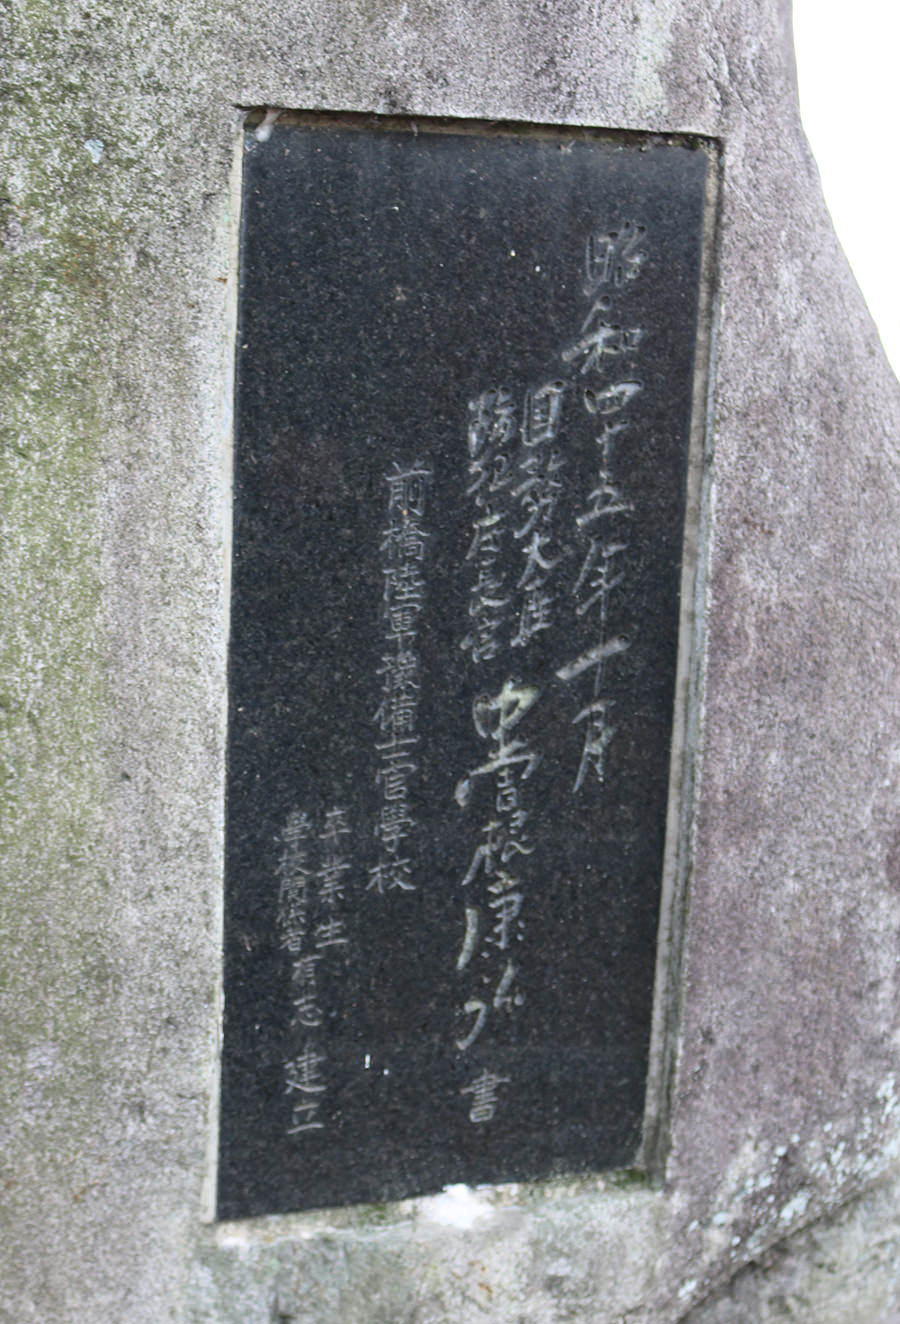 昭和四十五年十月
国務大臣
防衛庁長官
中曽根康弘 書
前橋陸軍豫備士官學校
卒業生
学校関係者有志 建立